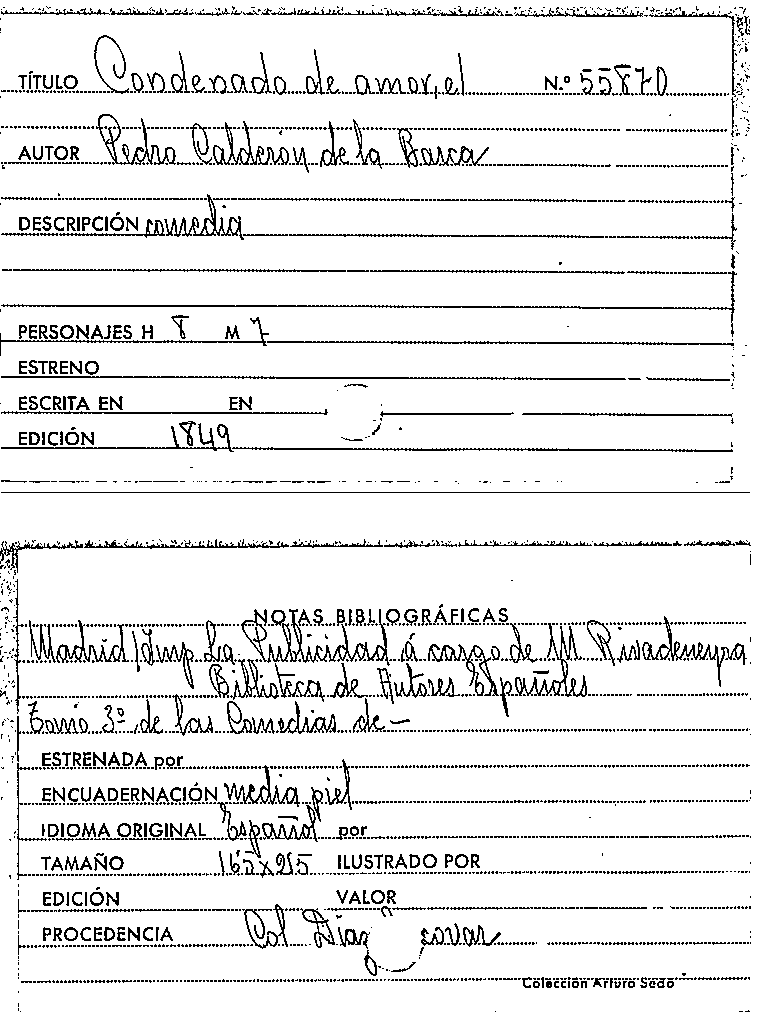 TÍTULO Condenado de amor, el N.º 55870
AUTOR Pedro Calderón de la Barca
DESCRIPCIÓN comedia
PERSONAJES H 8 M 7
ESTRENO
ESCRITA EN EN
EDICIÓN 1849
NOTAS BIBLIOGRÁFICAS
Madrid/Imp La Publicidad á cargo de M Rivadeneyra
Biblioteca de Autores Españoles
Tomo 3º de las Comedias de —
ESTRENADA por
ENCUADERNACIÓN media piel
IDIOMA ORIGINAL Español por
TAMAÑO 165x255 ILUSTRADO POR
EDICIÓN VALOR
PROCEDENCIA Col Díaz
Colección Arturo Sedó